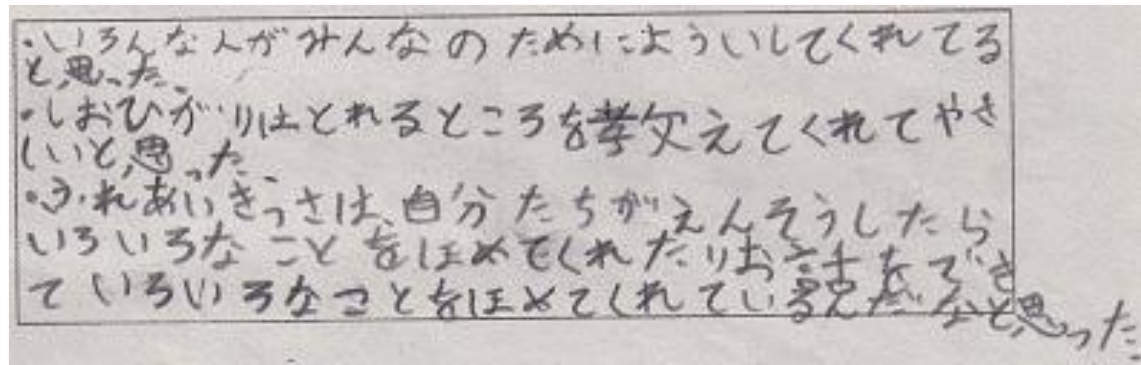 ・いろんな人がみんなのためによういしてくれてる
と思った。
・しおひがりはとれるところを教えてくれてやさ
しいと思った。
・ふれあいきっさは、自分たちがえんそうしたら
いろいろなことをほめてくれたりお話をでき
ていろいろなことをほめてくれているんだなと思った。